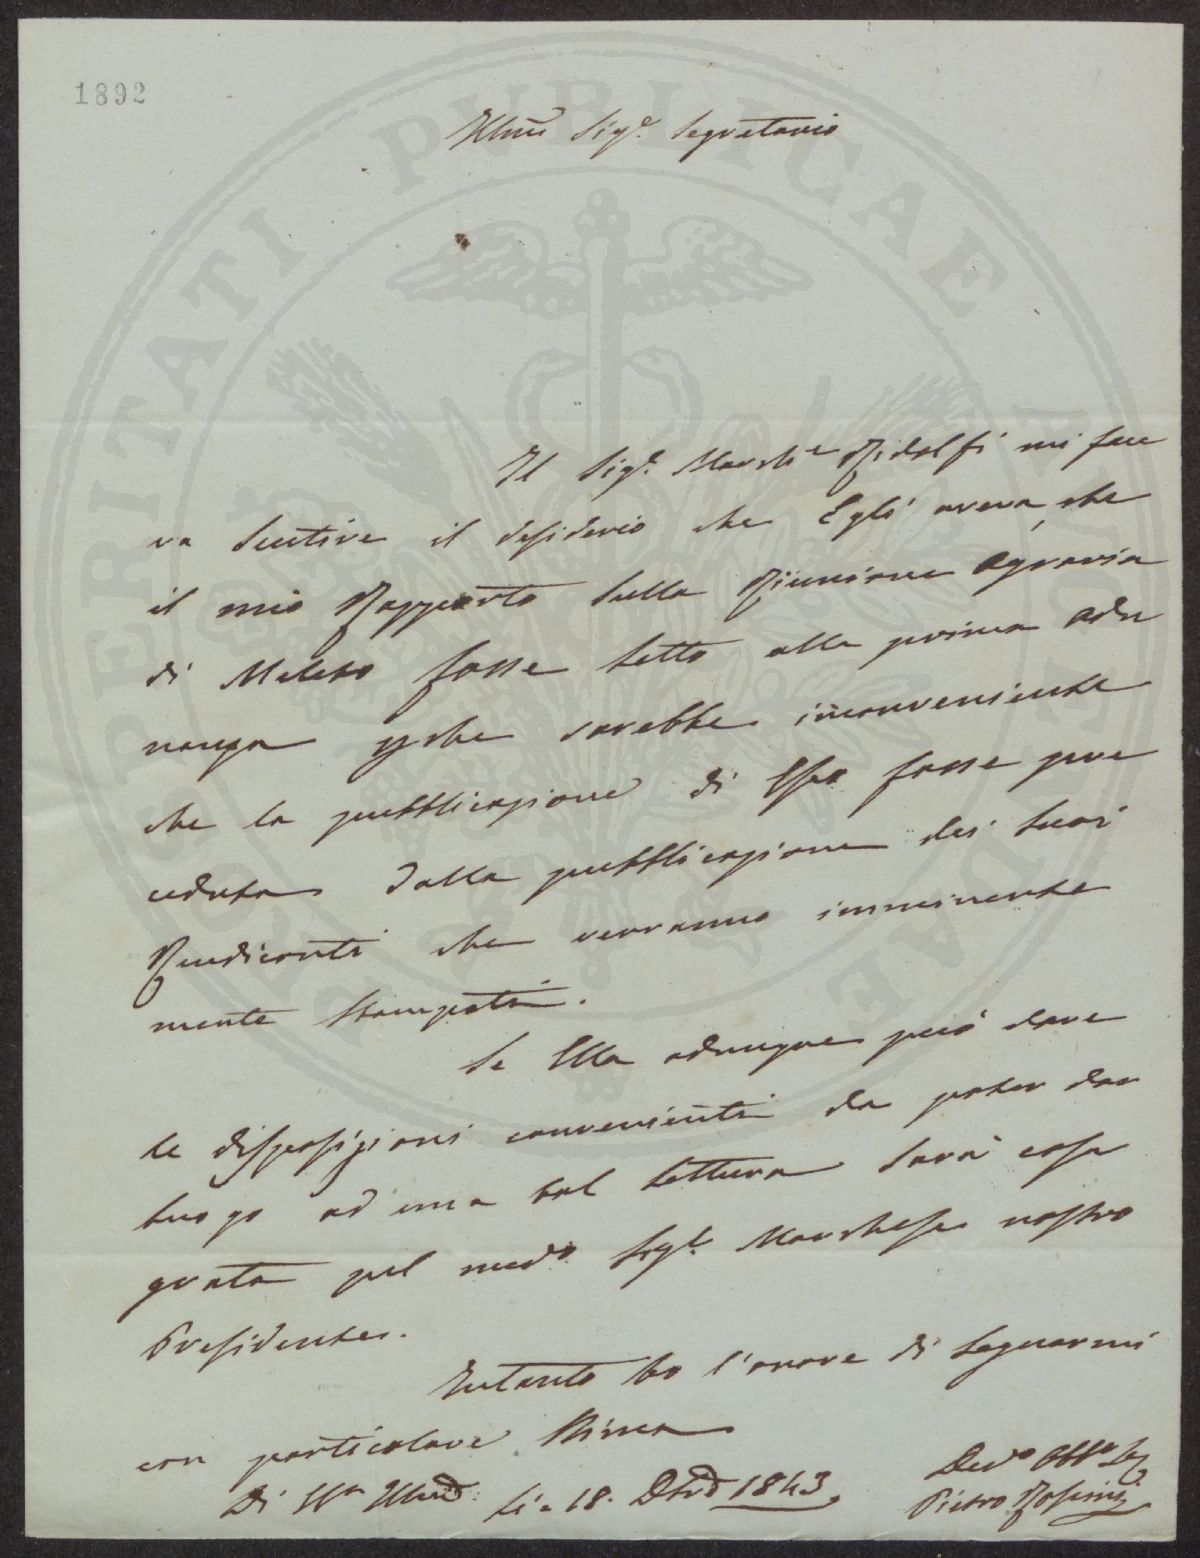 1892
Illmo Sige. Segretario
Il Sige. March.e Ridolfi mi face
va sentire il desiderio che Egli aveva, che
il mio Rapporto sulla Riunione Agraria
di Meleto fosse letto alla prima adu
nanza pche sarebbe inconveniente
che la pubblicazione di Esso fosse pre
ceduta dalla pubblicazione dei suoi
Rendiconti che verranno imminente
mente stampati.
Se Ella adunque può dare
le disposizioni convenienti da poter dar
luogo ad una tal lettura sarà cosa
grata pel medo. Sige. Marchese nostro
Presidente.
Intanto ho l'onore di segnarmi
con particolare stima
Di V.a Illma. Li = 18. Dbre 1843
Devo. Obbo. Se
Pietro Rosini
PROSPERITATI PUBLICAE AUGENDAE